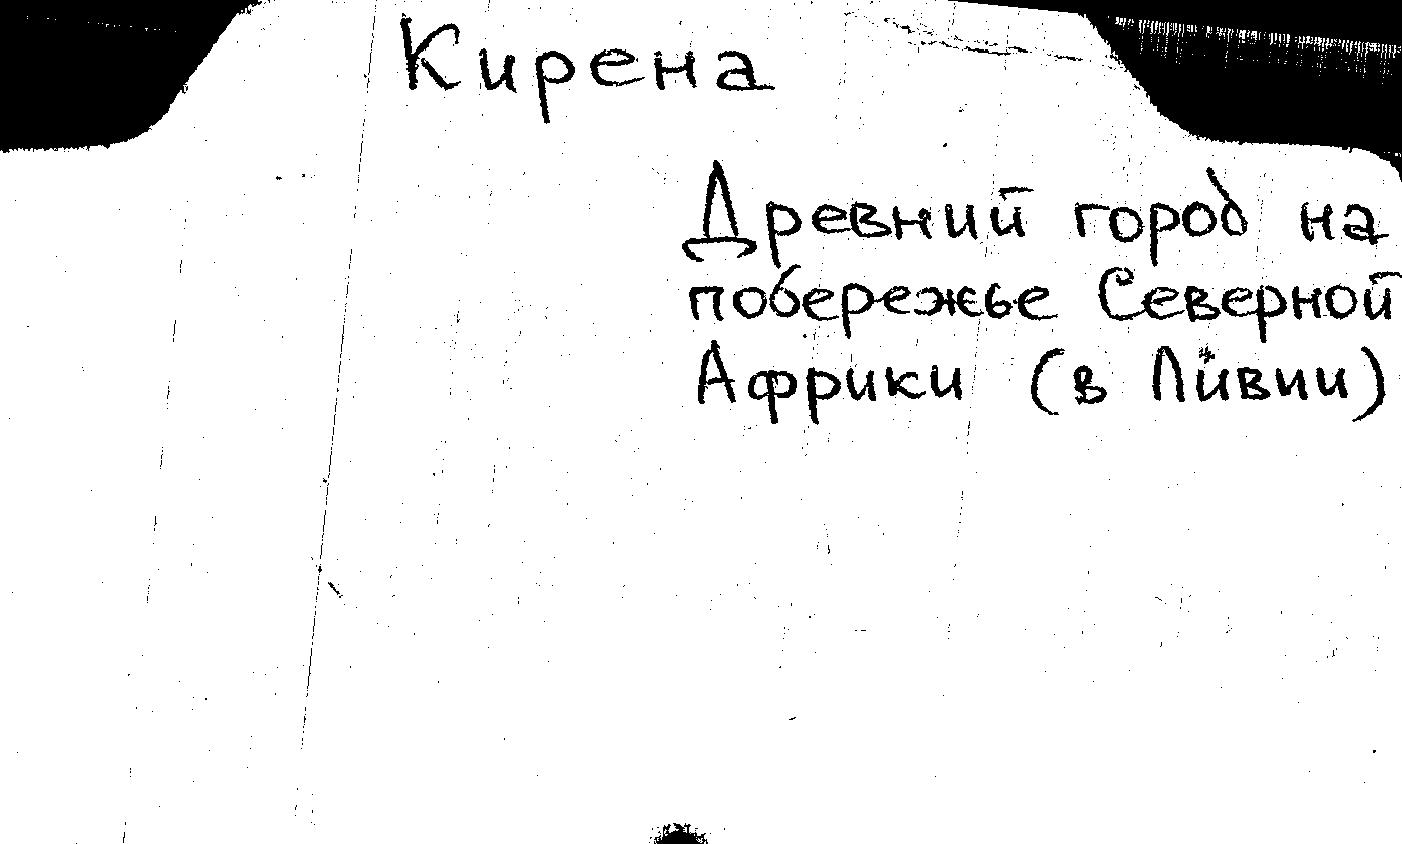 Кирена
Древний город на
побережье Северной
Африки (в Ливии)